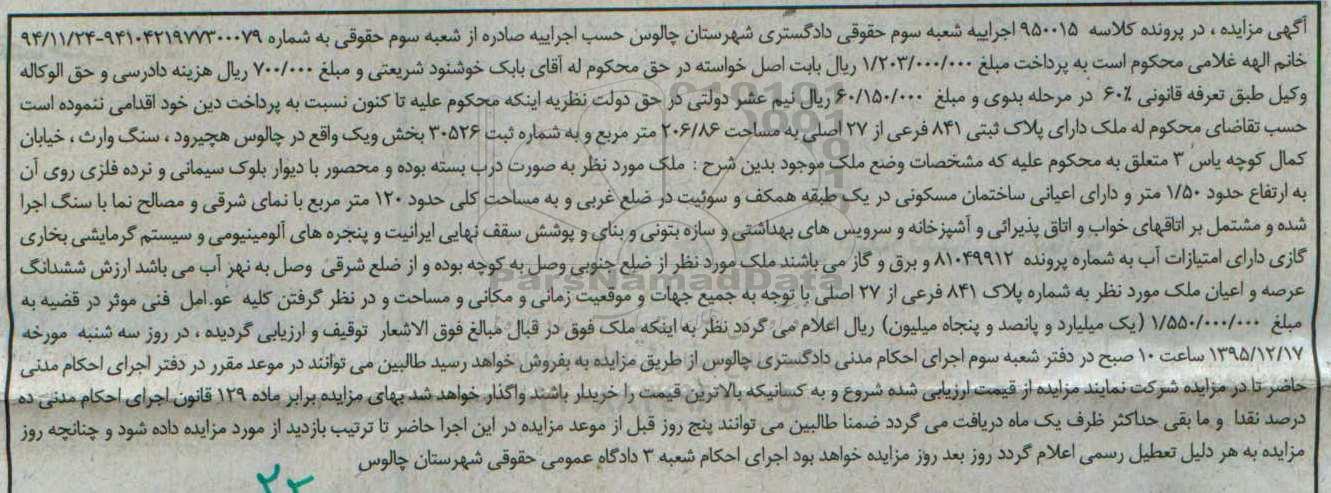 آگهی مزایده ، در پرونده کلاسه ۹۵۰۰۱۵ اجراییه شعبه سوم حقوقی دادگستری شهرستان چالوس حسب اجراییه صادره از شعبه سوم حقوقی به شماره ۹۴۱۰۴۲۱۹۷۷۳۰۰۰۷۹-۹۴/۱۱/۲۴
خانم الهه غلامی محکوم است به پرداخت مبلغ ۱/۲۰۳/۰۰۰/۰۰۰ ریال بابت اصل خواسته در حق محکوم له آقای بابک خوشنود شریعتی و مبلغ ۷۰۰/۰۰۰ ریال هزینه دادرسی و حق الوکاله
وکیل طبق تعرفه قانونی ۶۰٪ در مرحله بدوی و مبلغ ۶۰/۱۵۰/۰۰۰ ریال نیم عشر دولتی در حق دولت نظربه اینکه محکوم علیه تا کنون نسبت به پرداخت دین خود اقدامی ننموده است
حسب تقاضای محکوم له ملک دارای پلاک ثبتی ۸۴۱ فرعی از ۲۷ اصلی به مساحت ۲۰۶/۸۶ متر مربع و به شماره ثبت ۳۰۵۲۶ بخش ویک واقع در چالوس هچیرود ، سنگ وارث ، خیابان
کمال کوچه یاس ۳ متعلق به محکوم علیه که مشخصات وضع ملک موجود بدین شرح : ملک مورد نظر به صورت درب بسته بوده و محصور با دیوار بلوک سیمانی و نرده فلزی روی آن
به ارتفاع حدود ۱/۵۰ متر و دارای اعیانی ساختمان مسکونی در یک طبقه همکف و سوئیت در ضلع غربی و به مساحت کلی حدود ۱۲۰ متر مربع با نمای شرقی و مصالح نما با سنگ اجرا
شده و مشتمل بر اتاقهای خواب و اتاق پذیرائی و آشپزخانه و سرویس های بهداشتی و سازه بتونی و بنای و پوشش سقف نهایی ایرانیت و پنجره های آلومینیومی و سیستم گرمایشی بخاری
گازی دارای امتیازات آب به شماره پرونده ۸۱۰۴۹۹۱۲ و برق و گاز می باشند ملک مورد نظر از ضلع جنوبی وصل به کوچه بوده و از ضلع شرقی وصل به نهر آب می باشد ارزش ششدانگ
عرصه و اعیان ملک مورد نظر به شماره پلاک ۸۴۱ فرعی از ۲۷ اصلی با توجه به جمیع جهات و موقعیت زمانی و مکانی و مساحت و در نظر گرفتن کلیه عو.امل فنی موثر در قضیه به
مبلغ ۱/۵۵۰/۰۰۰/۰۰۰ (یک میلیارد و پانصد و پنجاه میلیون) ریال اعلام می گردد نظر به اینکه ملک فوق در قبال مبالغ فوق الاشعار توقیف و ارزیابی گردیده ، در روز سه شنبه مورخه
۱۳۹۵/۱۲/۱۷ ساعت ۱۰ صبح در دفتر شعبه سوم اجرای احکام مدنی دادگستری چالوس از طریق مزایده به بفروش خواهد رسید طالبین می توانند در موعد مقرر در دفتر اجرای احکام مدنی
حاضر تا در مزایده شرکت نمایند مزایده از قیمت ارزیابی شده شروع و به کسانیکه بالاترین قیمت را خریدار باشند واگذار خواهد شد بهای مزایده برابر ماده ۱۲۹ قانون اجرای احکام مدنی ده
درصد نقدا و ما بقی حداکثر ظرف یک ماه دریافت می گردد ضمنا طالبین می توانند پنج روز قبل از موعد مزایده در این اجرا حاضر تا ترتیب بازدید از مورد مزایده داده شود و چنانچه روز
مزایده به هر دلیل تعطیل رسمی اعلام گردد روز بعد روز مزایده خواهد بود اجرای احکام شعبه ۳ دادگاه عمومی حقوقی شهرستان چالوس
ParsNamadData